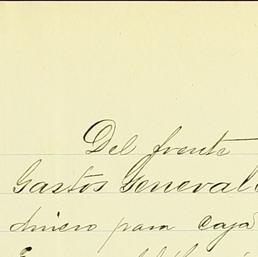 Del frente
Gastos Generales
dinero para caja